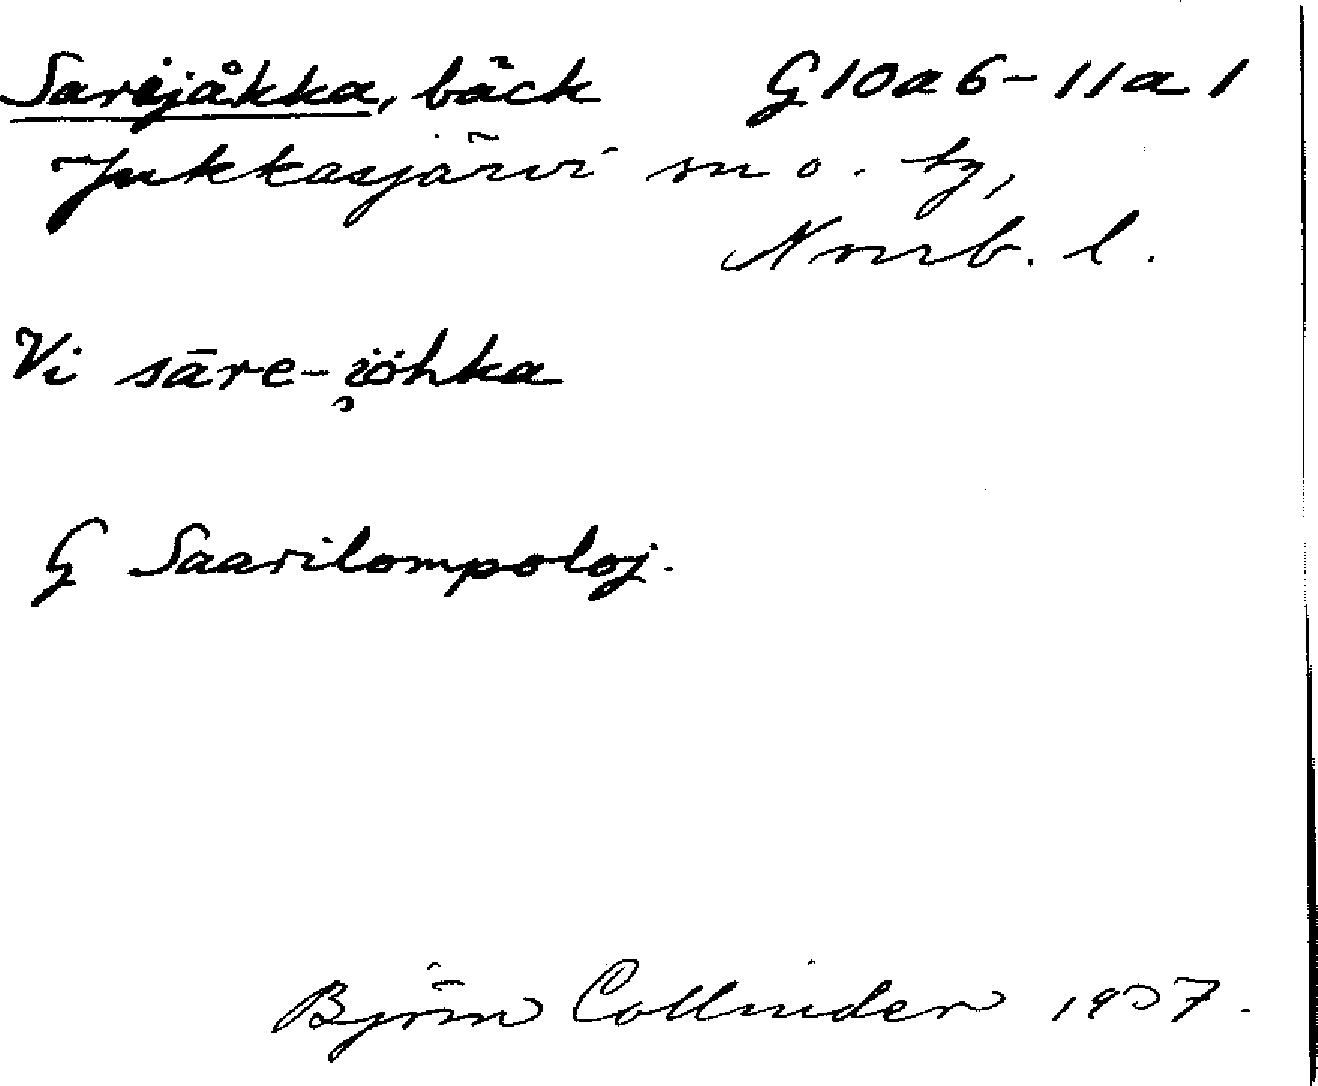 Sarejåkka, bäck G10a6-11a1
Jukkasjärvi sn o. tg,
Norrb. l.
Vi sāre-jǫ̇hka
G Saarilompoloj.
Björn Collinder 1957.